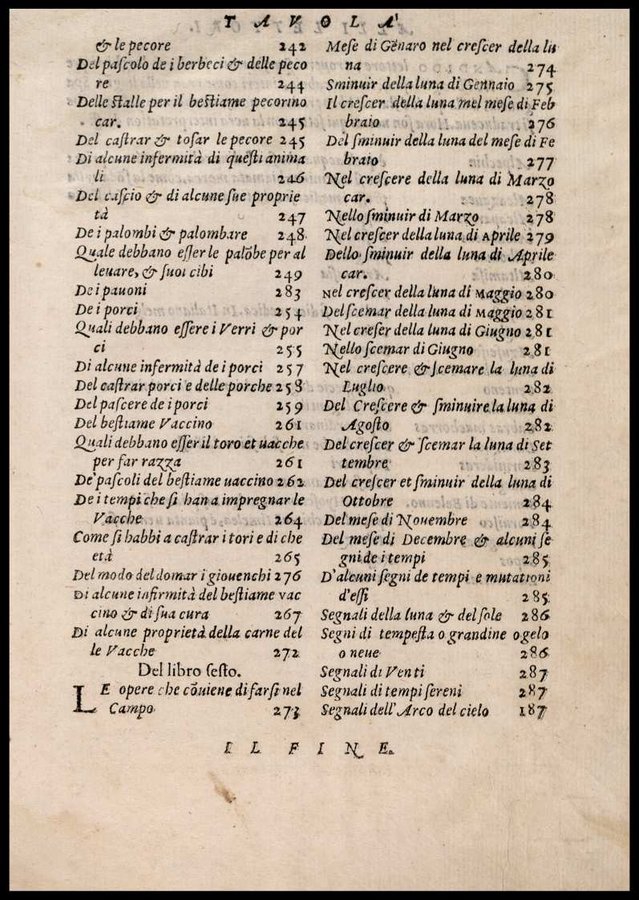 TAVOLA
& le pecore 242
Del paſcolo de i berbeci & delle peco
re 244
Delle ſtalle per il beſtiame pecorino
car. 245
Del caſtrar & toſar le pecore 245
Di alcune infermità di queſti anima
li 246
Del caſcio & di alcune ſue proprie
tà 247
De i palombi & palombare 248
Quale debbano eſſer le palōbe per al
leuare, & ſuoi cibi 249
De i pauoni 283
De i porci 254
Quali debbano eſſere i Verri & por
ci 255
Di alcune infermità de i porci 257
Del caſtrar porci e delle porche 258
Del paſcere de i porci 259
Del beſtiame Vaccino 261
Quali debbano eſſer il toro et uacche
per far razza 261
De' paſcoli del beſtiame uaccino 262
De i tempi che ſi han a impregnar le
Vacche 264
Come ſi habbi a caſtrar i tori e di che
età 265
Del modo del domar i giouenchi 276
Di alcune infirmità del beſtiame vac
cino & di ſua cura 267
Di alcune proprietà della carne del
le Vacche 272
Del libro ſeſto.
LE opere che cōuiene di farſi nel
Campo 273
Meſe di Genaro nel creſcer della lu
na 274
Sminuir della luna di Gennaio 275
Il creſcer della luna mel meſe di Feb
braio 276
Del ſminuir della luna del meſe di Fe
braio 277
Nel creſcere della luna di Marzo
car. 278
Nello ſminuir di Marzo 278
Nel creſcer della luna di Aprile 279
Dello ſminuir della luna di Aprile
car. 280
Nel creſcer della luna di Maggio 280
Del ſcemar della luna di Maggio 281
Nel creſcer della luna di Giugno 281
Nello ſcemar di Giugno 281
Nel creſcere & ſcemare la luna di
Luglio 282
Del Creſcere & ſminuire la luna di
Agoſto 282
Del creſcer & ſcemar la luna di Set
tembre 283
Del creſcer et ſminuir della luna di
Ottobre 284
Del meſe di Nouembre 284
Del meſe di Decembre & alcuni ſe
gni de i tempi 285
D'alcuni ſegni de tempi e mutationi
d'eſſi 285
Segnali della luna & del ſole 286
Segni di tempeſta o grandine o gelo
o neue 286
Segnali di Venti 287
Segnali di tempi ſereni 287
Segnali dell'Arco del cielo 187
IL FINE.